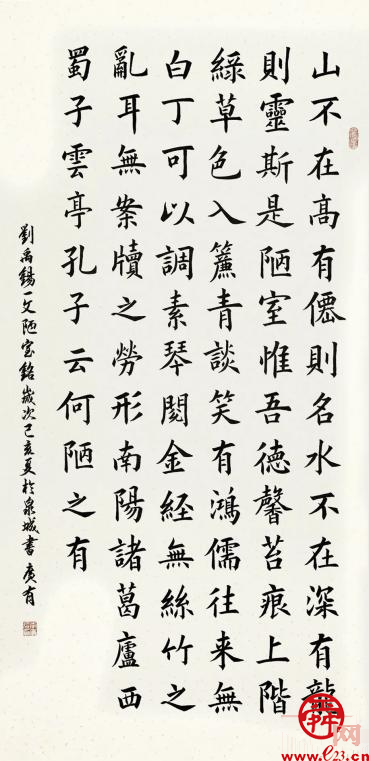 山不在高有僊則名水不在深有龍
則靈斯是陋室惟吾德馨苔痕上階
綠草色入簾青談笑有鴻儒往来無
白丁可以調素琴閱金経無絲竹之
亂耳無案牘之勞形南陽諸葛廬西
蜀子雲亭孔子云何陋之有
劉禹錫一文陋室銘歲次己亥夏於泉城書 广有
舜网
www.e23.cn